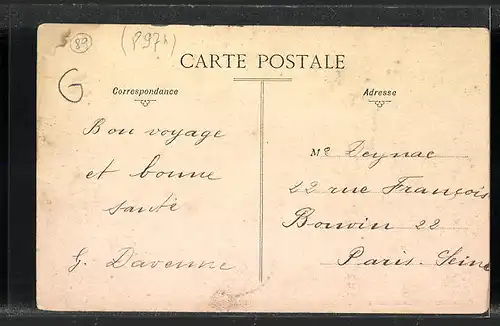 89
(P97h)
CARTE POSTALE
G
Correspondance
Adresse
Bon voyage
et bonne
santé
G. Davenne
Me Deynac
22 rue François
Bonvin 22
Paris. Seine